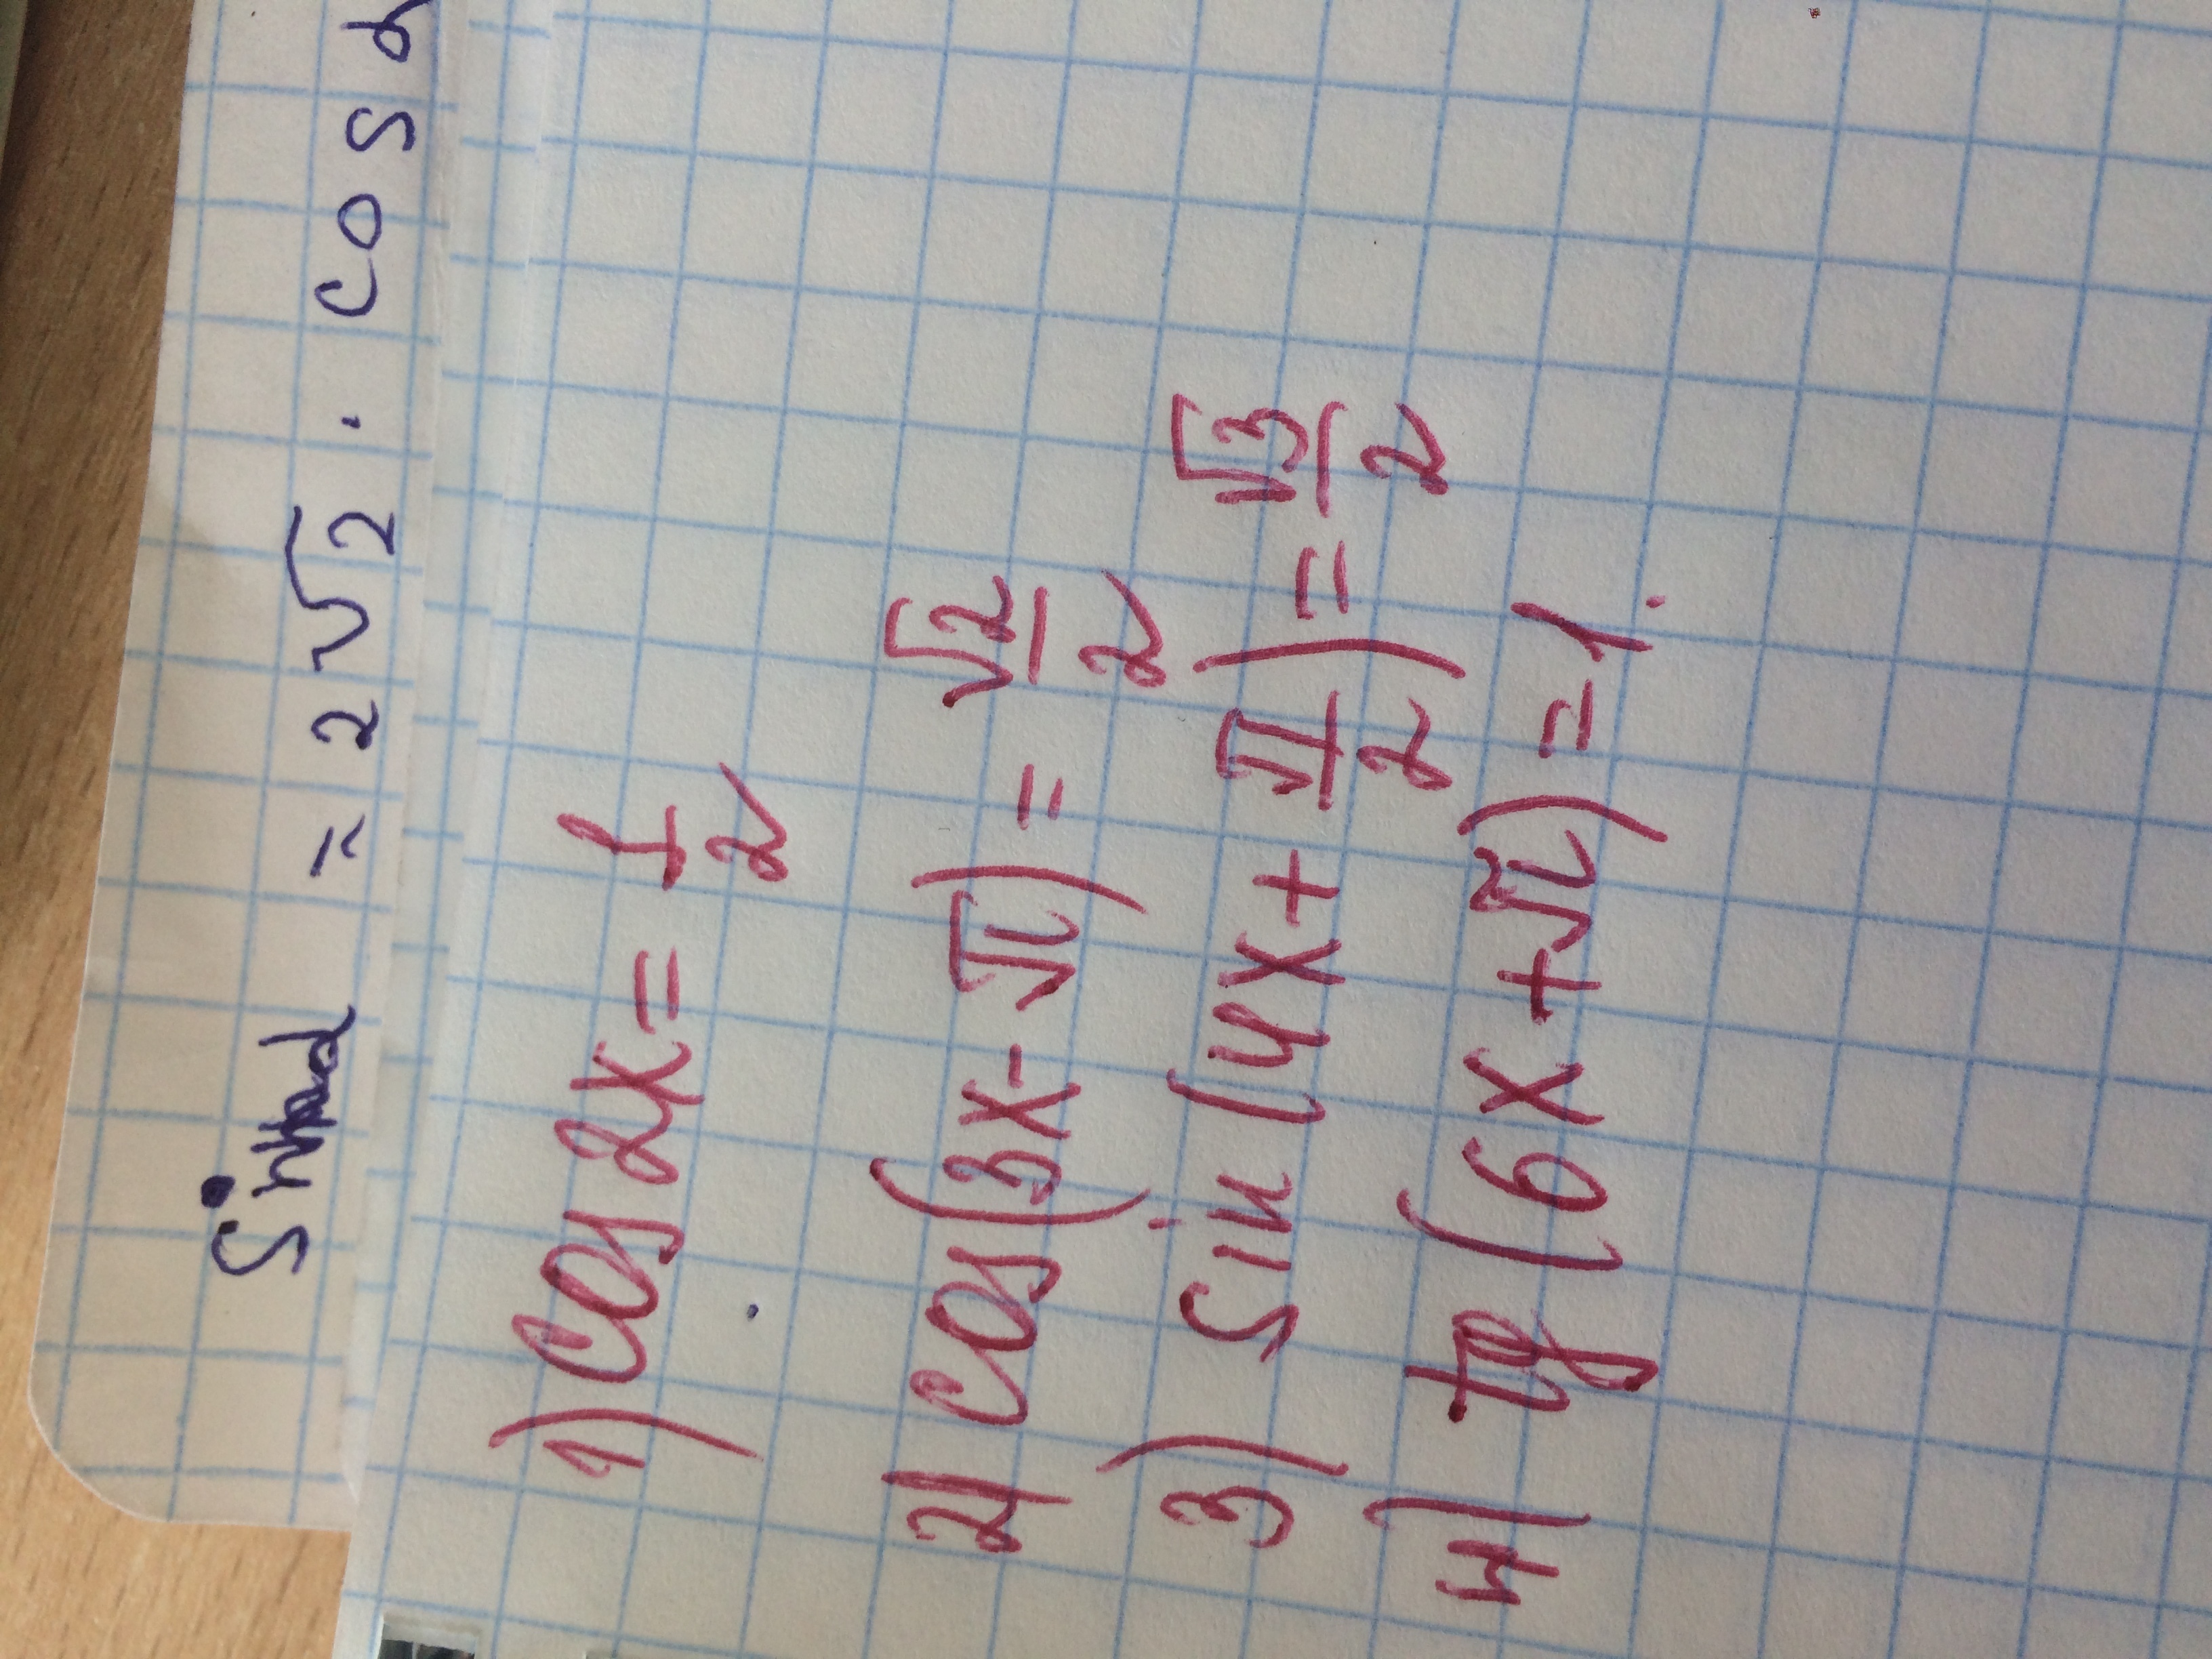 Sin α = 2√2 · cos α
1) cos 2x = 1/2
2) cos(3x - π) = √2/2
3) sin (4x + π/2) = √3/2
4) tg (6x + π) = 1.